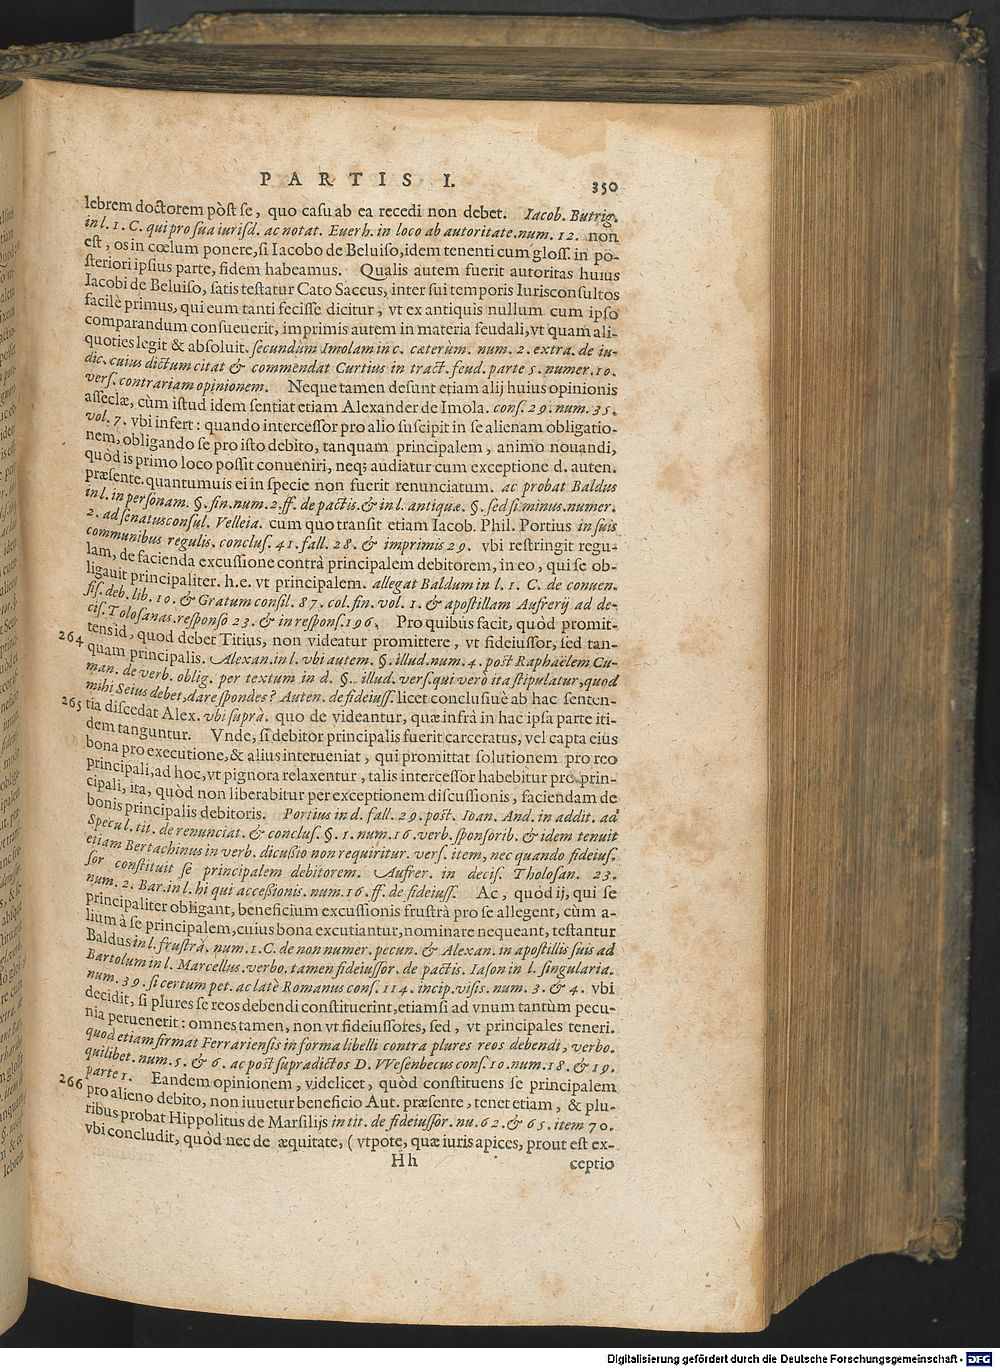 PARTIS I. 350
lebrem doctorem pòst se, quo casu ab ea recedi non debet. Iacob. Butrig.
in l. 1. C. qui pro sua iurisd. ac notat. Euerh. in loco ab autoritate. num. 12. non
est, os in cœlum ponere, si Iacobo de Beluiso, idem tenenti cum gloss. in po-
steriori ipsius parte, fidem habeamus. Qualis autem fuerit autoritas huius
Iacobi de Beluiso, satis testatur Cato Saccus, inter sui temporis Iurisconsultos
facilè primus, qui eum tanti fecisse dicitur, vt ex antiquis nullum cum ipso
comparandum consueuerit, imprimis autem in materia feudali, vt quam ali-
quoties legit & absoluit. secundùm Imolam in c. cæterùm. num. 2. extra. de iu-
dic. cuius dictum citat & commendat Curtius in tract. feud. parte 5. numer. 10.
vers. contrariam opinionem. Neque tamen desunt etiam alij huius opinionis
asseclæ, cùm istud idem sentiat etiam Alexander de Imola. cons. 29. num. 35.
vol. 7. vbi infert: quando intercessor pro alio suscipit in se alienam obligatio-
nem, obligando se pro isto debito, tanquam principalem, animo nouandi,
quòd is primo loco possit conueniri, neq; audiatur cum exceptione d. auten.
præsente. quantumuis ei in specie non fuerit renunciatum. ac probat Baldus
in l. in personam. §. fin. num. 2. ff. de pactis. & in l. antiquæ. §. sed si minus. numer.
2. ad senatusconsul. Velleia. cum quo transit etiam Iacob. Phil. Portius in suis
communibus regulis. conclus. 41. fall. 28. & imprimis 29. vbi restringit regu-
lam, de facienda excussione contrà principalem debitorem, in eo, qui se ob-
ligauit principaliter. h. e. vt principalem. allegat Baldum in l. 1. C. de conuen.
fis. deb. lib. 10. & Gratum consil. 87. col. fin. vol. 1. & apostillam Aufrerij ad de-
cis. Tolosanas. responso 23. & in respons. 196. Pro quibus facit, quòd promit-
264 tens id, quod debet Titius, non videatur promittere, vt fideiussor, sed tan-
quam principalis. Alexan. in l. vbi autem. §. illud. num. 4. post Raphaëlem Cu-
man. de verb. oblig. per textum in d. §. illud. vers. qui verò ita stipulatur, quod
mihi Seius debet, dare spondes? Auten. de fideiuss. licet conclusiuè ab hac senten-
265 tia discedat Alex. vbi suprà. quo de videantur, quæ infrà in hac ipsa parte iti-
dem tanguntur. Vnde, si debitor principalis fuerit carceratus, vel capta eius
bona pro executione, & alius interueniat, qui promittat solutionem pro reo
principali, ad hoc, vt pignora relaxentur, talis intercessor habebitur pro prin-
cipali, ita, quòd non liberabitur per exceptionem discussionis, faciendam de
bonis principalis debitoris. Portius in d. fall. 29. post. Ioan. And. in addit. ad
Specul. tit. de renunciat. & conclus. §. 1. num. 16. verb. sponsorib. & idem tenuit
etiam Bertachinus in verb. dicußio non requiritur. vers. item, nec quando fideius.
sor constituit se principalem debitorem. Aufrer. in decis. Tholosan. 23.
num. 2. Bar. in l. hi qui acceßionis. num. 16. ff. de fideiuss. Ac, quòd ij, qui se
principaliter obligant, beneficium excussionis frustrà pro se allegent, cùm a-
lium à se principalem, cuius bona excutiantur, nominare nequeant, testantur
Baldus in l. frustrà. num. 1. C. de non numer. pecun. & Alexan. in apostillis suis ad
Bartolum in l. Marcellus. verbo. tamen fideiussor. de pactis. Iason in l. singularia.
num. 39. si certum pet. ac latè Romanus cons. 114. incip. visis. num. 3. & 4. vbi
decidit, si plures se reos debendi constituerint, etiamsi ad vnum tantùm pecu-
nia peruenerit: omnes tamen, non vt fideiussores, sed, vt principales teneri.
quod etiam firmat Ferrariensis in forma libelli contra plures reos debendi, verbo.
quilibet. num. 5. & 6. ac post supradictos D. VVesenbecus cons. 10. num. 18. & 19.
266 parte 1. Eandem opinionem, videlicet, quòd constituens se principalem
pro alieno debito, non iuuetur beneficio Aut. præsente, tenet etiam, & plu-
ribus probat Hippolitus de Marsilijs in tit. de fideiussor. nu. 62. & 65. item 70.
vbi concludit, quòd nec de æquitate, (vtpote, quæ iuris apices, prout est ex-
Hh ceptio
Digitalisierung gefördert durch die Deutsche Forschungsgemeinschaft - DFG